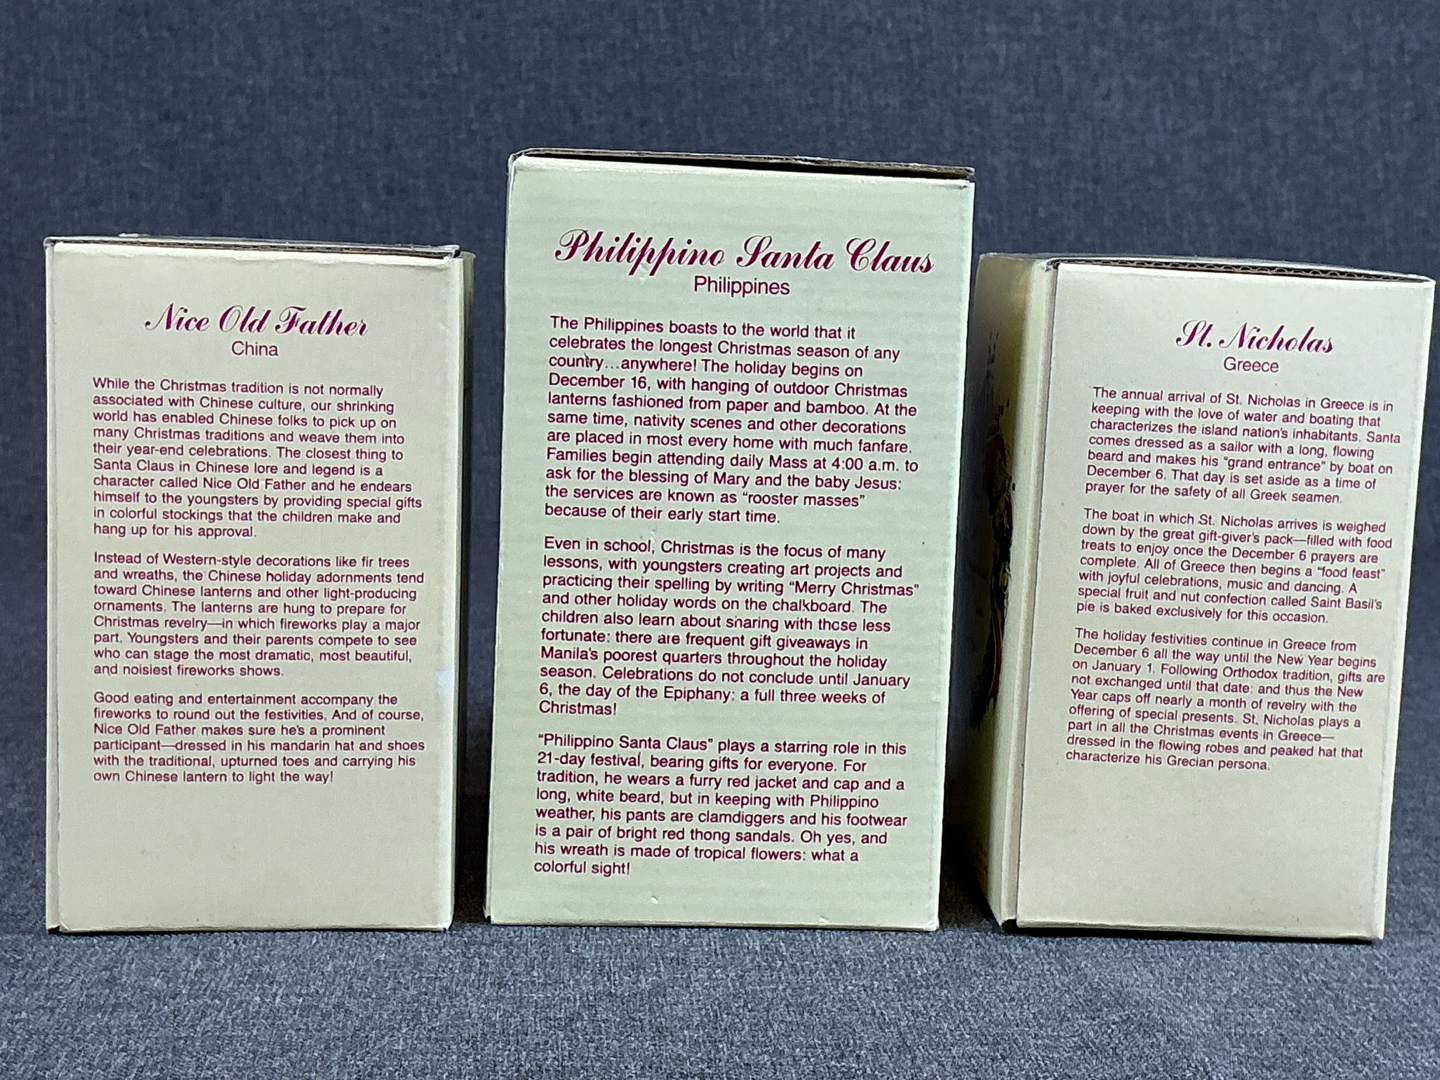 Nice Old Father
China
While the Christmas tradition is not normally
associated with Chinese culture, our shrinking
world has enabled Chinese folks to pick up on
many Christmas traditions and weave them into
their year-end celebrations. The closest thing to
Santa Claus in Chinese lore and legend is a
character called Nice Old Father and he endears
himself to the youngsters by providing special gifts
in colorful stockings that the children make and
hang up for his approval.
Instead of Western-style decorations like fir trees
and wreaths, the Chinese holiday adornments tend
toward Chinese lanterns and other light-producing
ornaments. The lanterns are hung to prepare for
Christmas revelry—in which fireworks play a major
part. Youngsters and their parents compete to see
who can stage the most dramatic, most beautiful,
and noisiest fireworks shows.
Good eating and entertainment accompany the
fireworks to round out the festivities. And of course,
Nice Old Father makes sure he's a prominent
participant—dressed in his mandarin hat and shoes
with the traditional, upturned toes and carrying his
own Chinese lantern to light the way!
Philippino Santa Claus
Philippines
The Philippines boasts to the world that it
celebrates the longest Christmas season of any
country...anywhere! The holiday begins on
December 16, with hanging of outdoor Christmas
lanterns fashioned from paper and bamboo. At the
same time, nativity scenes and other decorations
are placed in most every home with much fanfare.
Families begin attending daily Mass at 4:00 a.m. to
ask for the blessing of Mary and the baby Jesus:
the services are known as "rooster masses"
because of their early start time.
Even in school, Christmas is the focus of many
lessons, with youngsters creating art projects and
practicing their spelling by writing "Merry Christmas"
and other holiday words on the chalkboard. The
children also learn about sharing with those less
fortunate: there are frequent gift giveaways in
Manila's poorest quarters throughout the holiday
season. Celebrations do not conclude until January
6, the day of the Epiphany: a full three weeks of
Christmas!
"Philippino Santa Claus" plays a starring role in this
21-day festival, bearing gifts for everyone. For
tradition, he wears a furry red jacket and cap and a
long, white beard, but in keeping with Philippino
weather, his pants are clamdiggers and his footwear
is a pair of bright red thong sandals. Oh yes, and
his wreath is made of tropical flowers: what a
colorful sight!
St. Nicholas
Greece
The annual arrival of St. Nicholas in Greece is in
keeping with the love of water and boating that
characterizes the island nation's inhabitants. Santa
comes dressed as a sailor with a long, flowing
beard and makes his "grand entrance" by boat on
December 6. That day is set aside as a time of
prayer for the safety of all Greek seamen.
The boat in which St. Nicholas arrives is weighed
down by the great gift-giver's pack—filled with food
treats to enjoy once the December 6 prayers are
complete. All of Greece then begins a "food feast"
with joyful celebrations, music and dancing. A
special fruit and nut confection called Saint Basil's
pie is baked exclusively for this occasion.
The holiday festivities continue in Greece from
December 6 all the way until the New Year begins
on January 1. Following Orthodox tradition, gifts are
not exchanged until that date: and thus the New
Year caps off nearly a month of revelry with the
offering of special presents. St. Nicholas plays a
part in all the Christmas events in Greece—
dressed in the flowing robes and peaked hat that
characterize his Grecian persona.